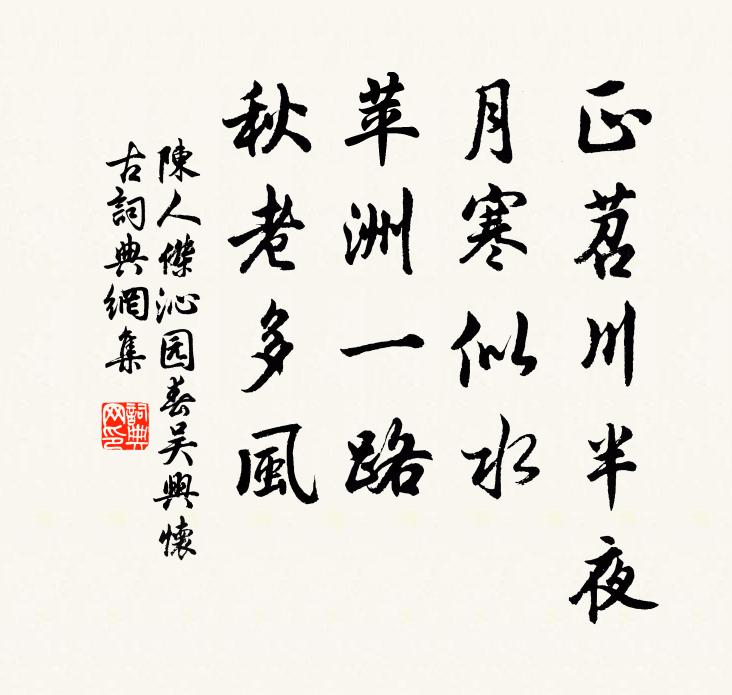 正苕川半夜
月寒似水
苹洲一路
秋老多風
陳人傑沁园春吴興懷
古詞典網集
詞典网印